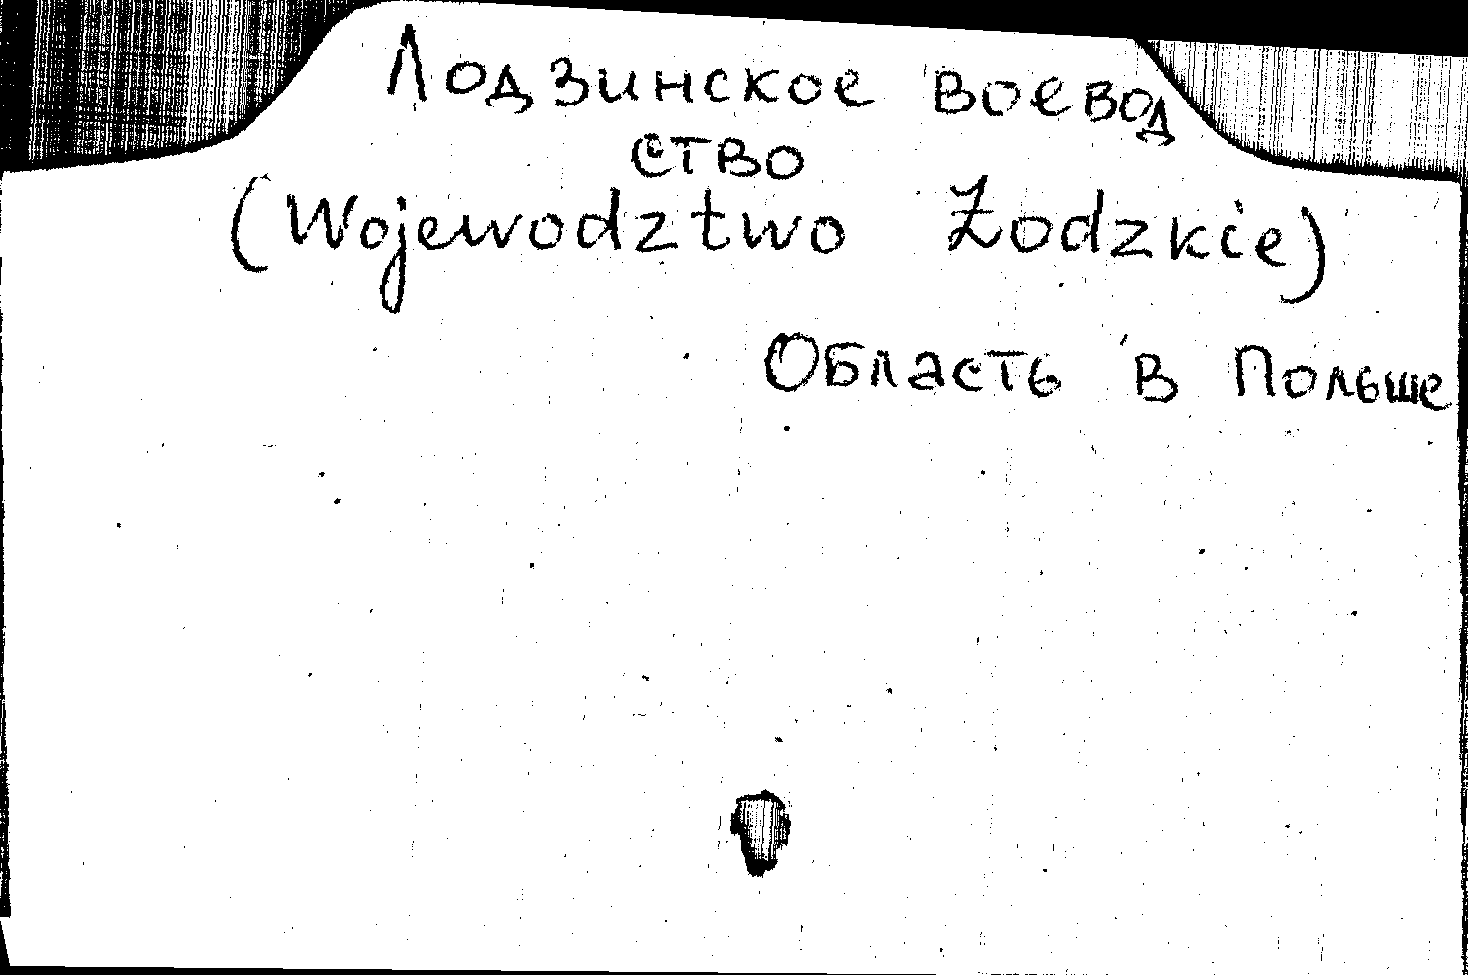 Лодзинское воевод
ство
(Wojewodztwo Łodzkie)
Область в Польше